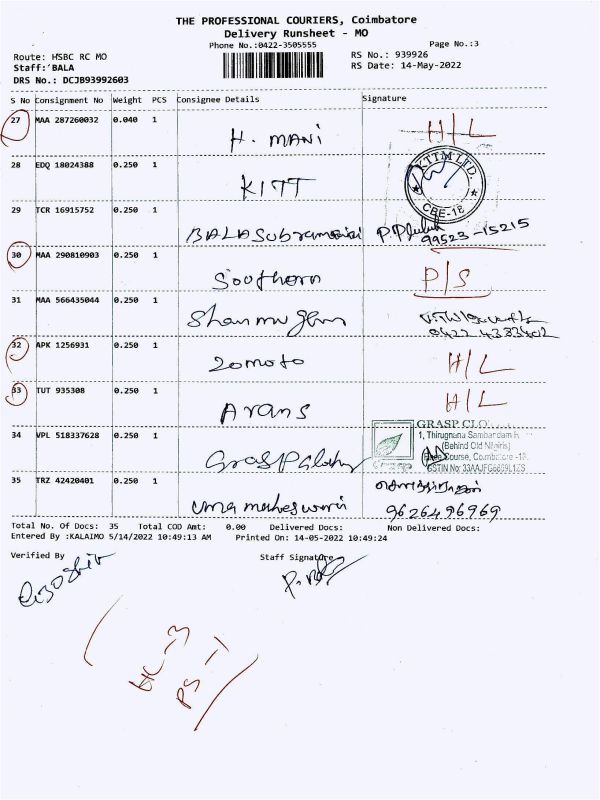 THE PROFESSIONAL COURIERS, Coimbatore
Delivery Runsheet - MO
Phone No.:0422-3505555 Page No.:3
Route: HSBC RC MO RS No.: 939926
Staff:'BALA RS Date: 14-May-2022
DRS No.: DCJB93992603
S No Consignment No Weight PCS Consignee Details Signature
27 MAA 287260032 0.040 1 H. MANi H/L
28 EDQ 18024388 0.250 1 KITT
KTTM LTD.
★ ★
CBE-18
29 TCR 16915752 0.250 1 BALASubramanian
99523-15215
30 MAA 290810903 0.250 1 Soothern P/S
31 MAA 566435044 0.250 1 Shanmugam
0422 4383402
32 APK 1256931 0.250 1 Zomoto H/L
33 TUT 935308 0.250 1 Arans H/L
34 VPL 518337628 0.250 1
GRASP CLO
1, Thirugnana Sambandam
(Behind Old Nilgiris)
Race Course, Coimbatore -18.
GSTIN No: 33AAJFG6669L1ZS
35 TRZ 42420401 0.250 1 uma maheswari
9626496969
Total No. Of Docs: 35 Total COD Amt: 0.00 Delivered Docs: Non Delivered Docs:
Entered By :KALAIMO 5/14/2022 10:49:13 AM Printed On: 14-05-2022 10:49:24
Verified By Staff Signature
HL-3
PS-1